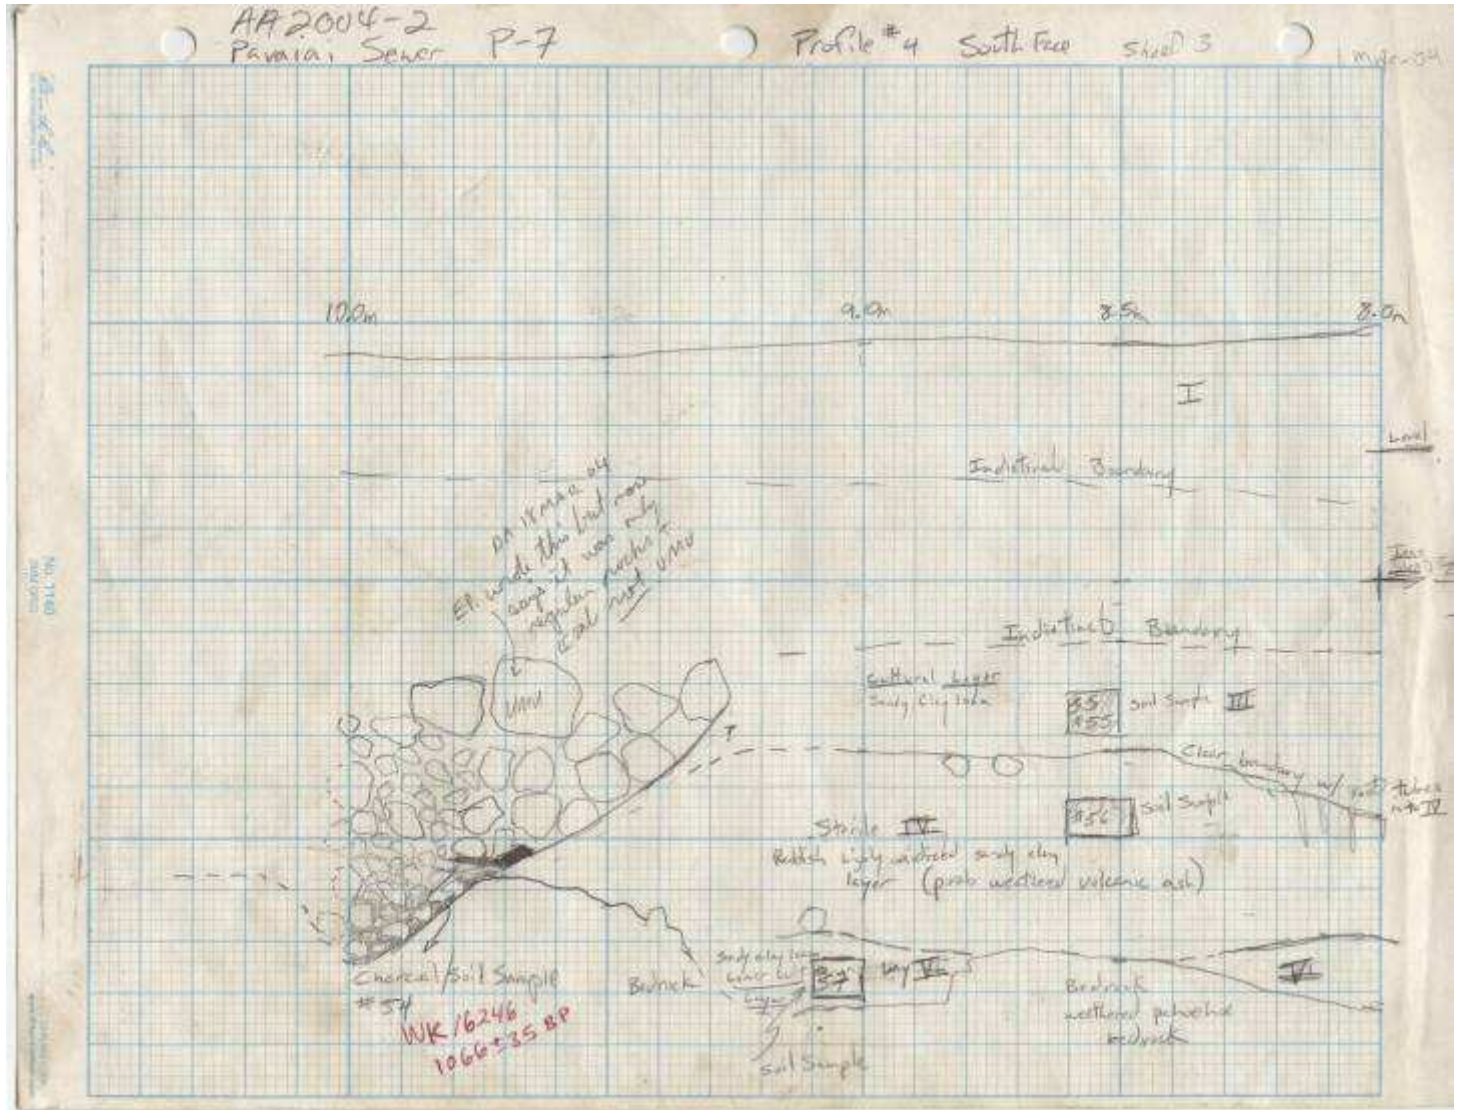 AA2004-2
Pavaiai Sewer P-7 Profile #4 South Face Sheet 3
10.0m 9.0m 8.5m 8.0m
I
Level
Indistinct Boundary
DA 18 MAR 04
EP. wrote this but now
says it was only
regular rocks +
not UMU
Indistinct Boundary
Cultural Layer
Sandy Clay loam
#55
Soil Sample III
umu
?
Clear boundary w/ root tubes
into IV
#56
Soil Sample
Sterile IV
Reddish highly weathered sandy clay
layer (prob weathered volcanic ash)
Charcoal/Soil Sample
#54
WK 16246
1066±35 BP
Bedrock
Sandy clay loam
Layer
57
Lay V
V
Bedrock
weathered pahoehoe
bedrock
Soil Sample
No. 1160